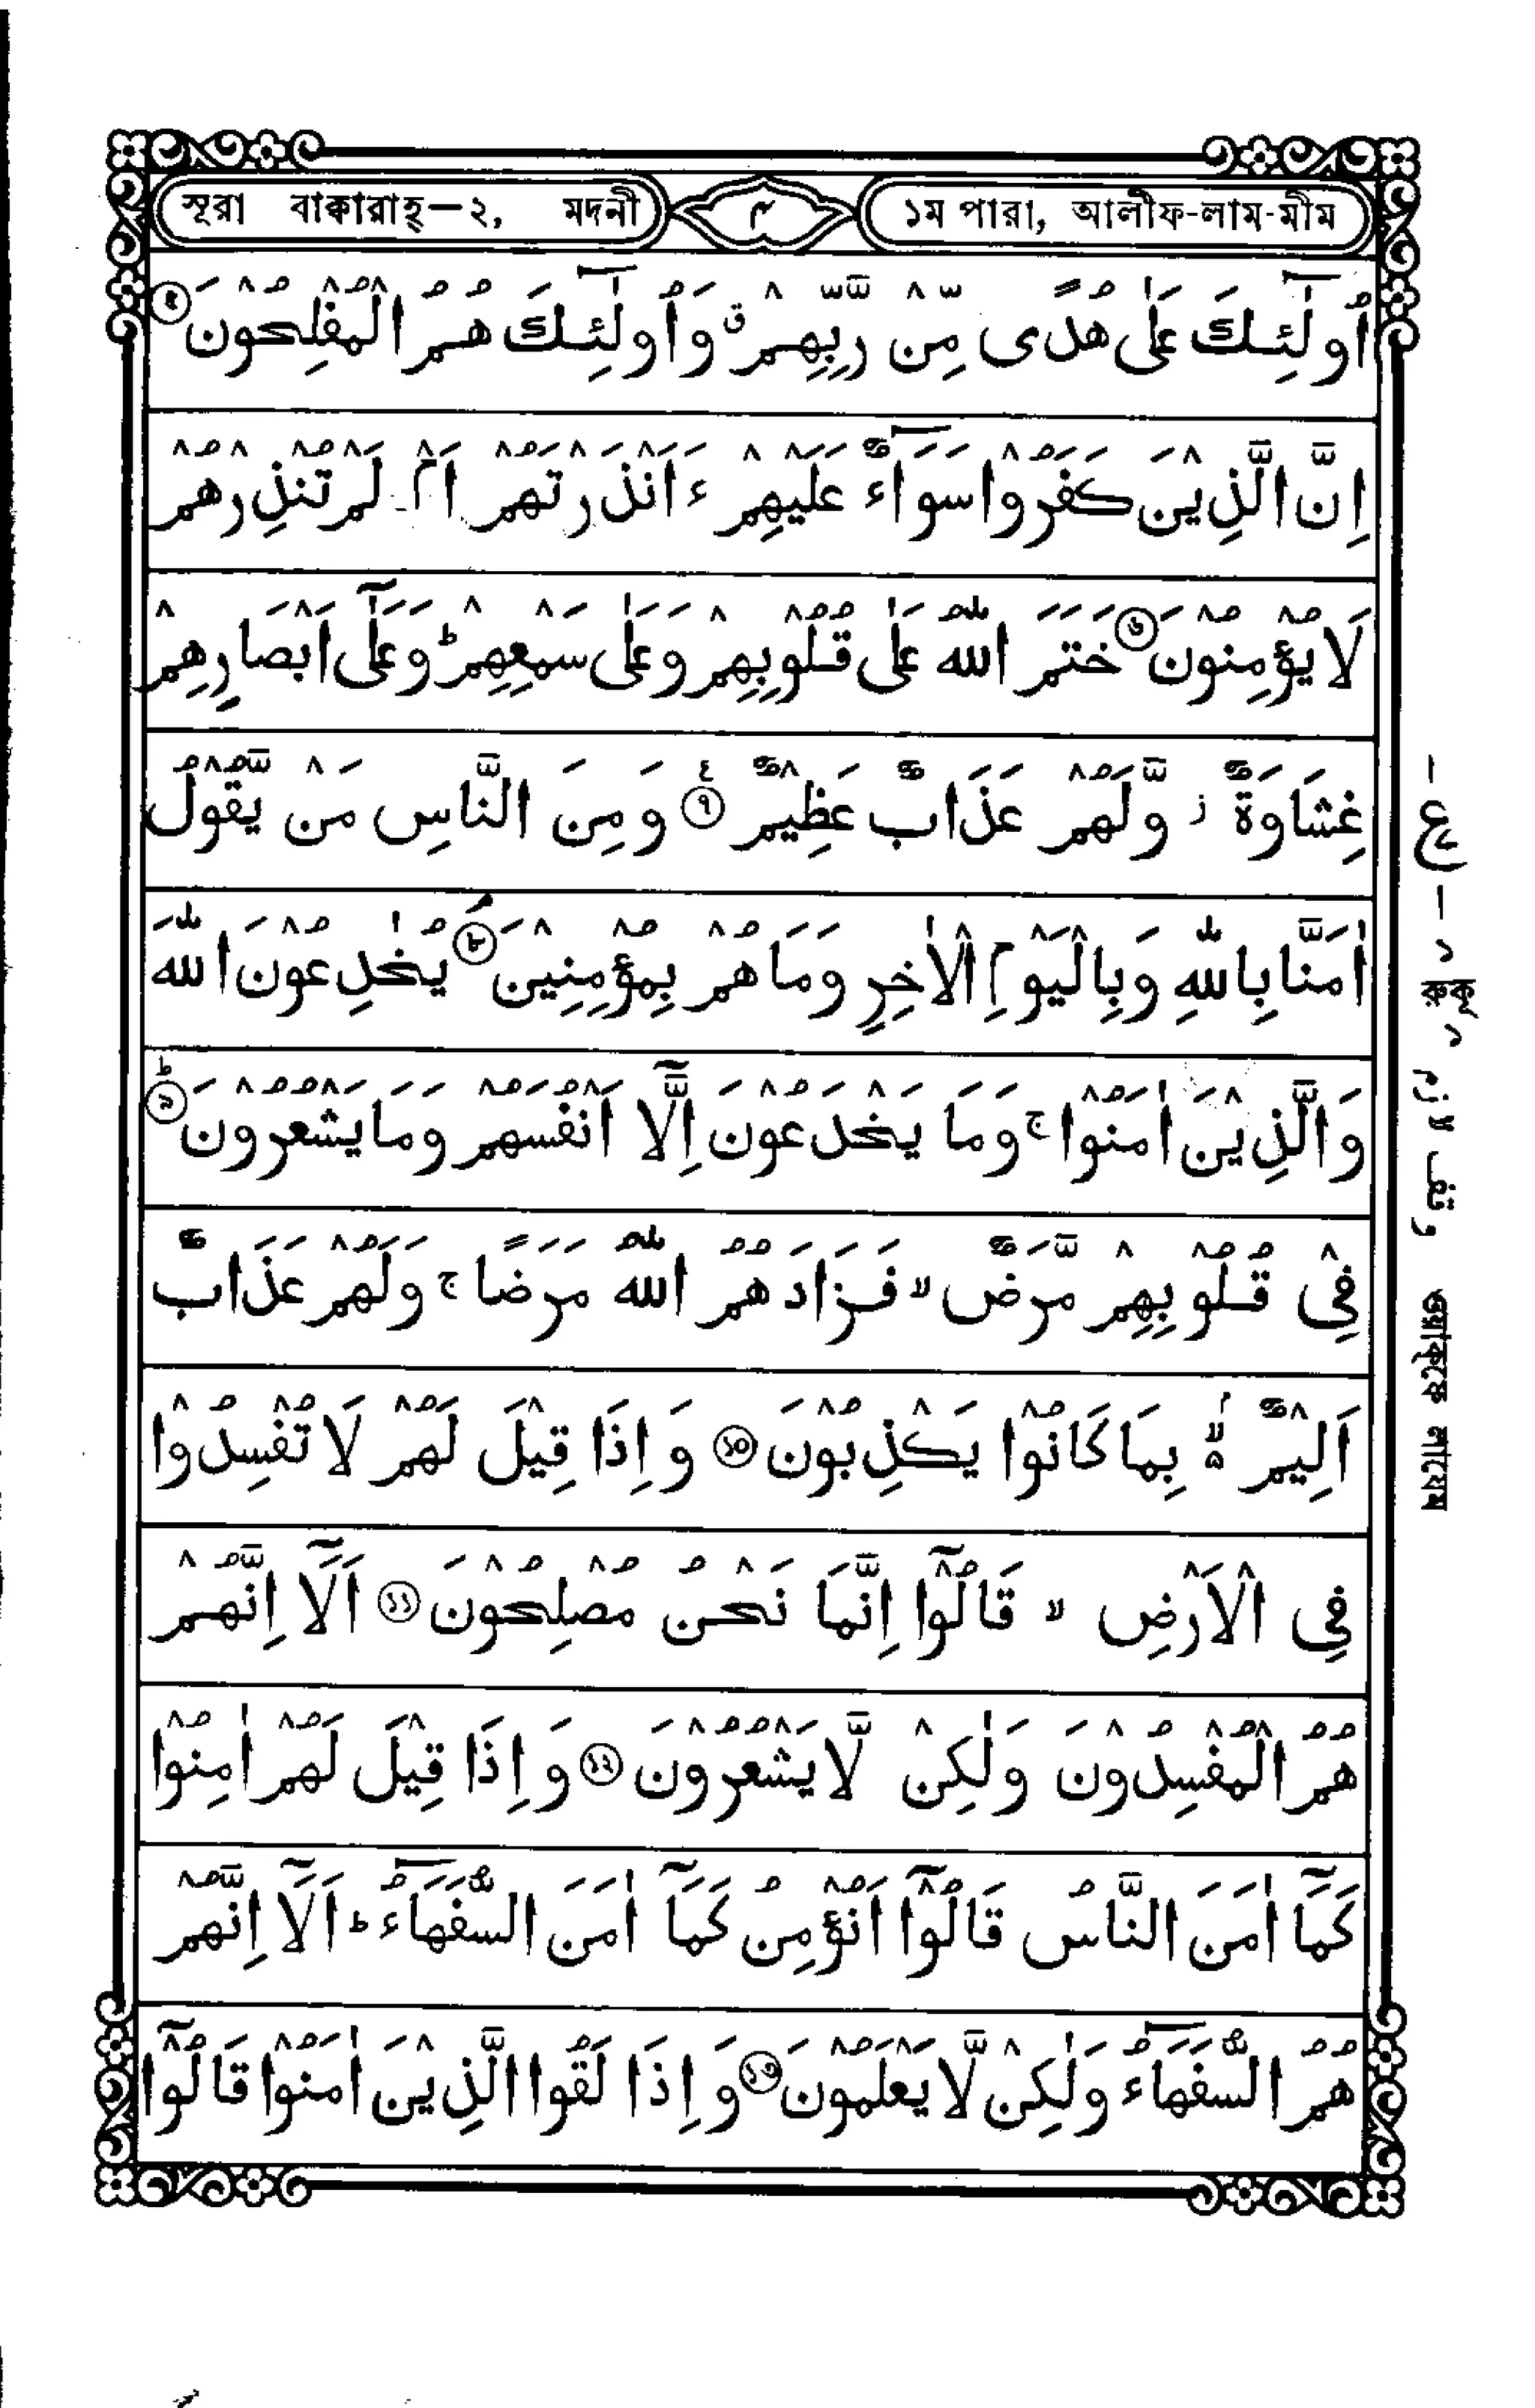 সূরা বাক্বারাহ্—২, মদনী
۳
১ম পারা, আলীফ-লাম-মীম
اُولٰٓئِكَ عَلٰى هُدًى مِّنْ رَّبِّهِمْ ۗ وَاُولٰٓئِكَ هُمُ الْمُفْلِحُوْنَ
اِنَّ الَّذِيْنَ كَفَرُوْا سَوَآءٌ عَلَيْهِمْ ءَاَنْذَرْتَهُمْ اَمْ لَمْ تُنْذِرْهُمْ
لَا يُؤْمِنُوْنَ ৬ خَتَمَ اللّٰهُ عَلٰى قُلُوْبِهِمْ وَعَلٰى سَمْعِهِمْ ؕ وَعَلٰٓى اَبْصَارِهِمْ
غِشَاوَةٌ ز وَّلَهُمْ عَذَابٌ عَظِيْمٌ ৭ وَمِنَ النَّاسِ مَنْ يَّقُوْلُ
اٰمَنَّا بِاللّٰهِ وَبِالْيَوْمِ الْاٰخِرِ وَمَا هُمْ بِمُؤْمِنِيْنَ ৮ يُخٰدِعُوْنَ اللّٰهَ
وَالَّذِيْنَ اٰمَنُوْا ۚ وَمَا يَخْدَعُوْنَ اِلَّآ اَنْفُسَهُمْ وَمَا يَشْعُرُوْنَ ৯ ؕ
فِىْ قُلُوْبِهِمْ مَّرَضٌ ۙ فَزَادَهُمُ اللّٰهُ مَرَضًا ۚ وَلَهُمْ عَذَابٌ
اَلِيْمٌ ۢ ۙ بِمَا كَانُوْا يَكْذِبُوْنَ ১০ وَاِذَا قِيْلَ لَهُمْ لَا تُفْسِدُوْا
فِى الْاَرْضِ ۙ قَالُوْٓا اِنَّمَا نَحْنُ مُصْلِحُوْنَ ১১ اَلَآ اِنَّهُمْ
هُمُ الْمُفْسِدُوْنَ وَلٰكِنْ لَّا يَشْعُرُوْنَ ১২ وَاِذَا قِيْلَ لَهُمْ اٰمِنُوْا
كَمَآ اٰمَنَ النَّاسُ قَالُوْٓا اَنُؤْمِنُ كَمَآ اٰمَنَ السُّفَهَآءُ ؕ اَلَآ اِنَّهُمْ
هُمُ السُّفَهَآءُ وَلٰكِنْ لَّا يَعْلَمُوْنَ ১৩ وَاِذَا لَقُوا الَّذِيْنَ اٰمَنُوْا قَالُوْٓا
ع
১
রুকু ১
وقف لازم
ওয়াক্বফে লাযেম